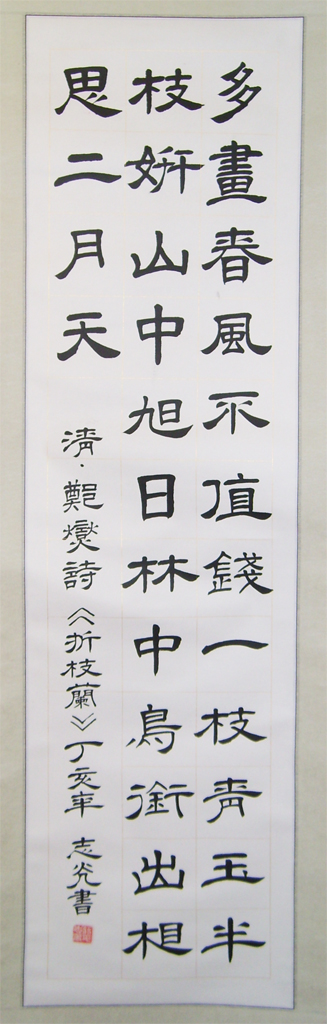 多畫春風不值錢一枝青玉半
枝妍山中旭日林中鳥銜出相
思二月天
清·鄭燮詩《折枝蘭》丁亥年 志光書